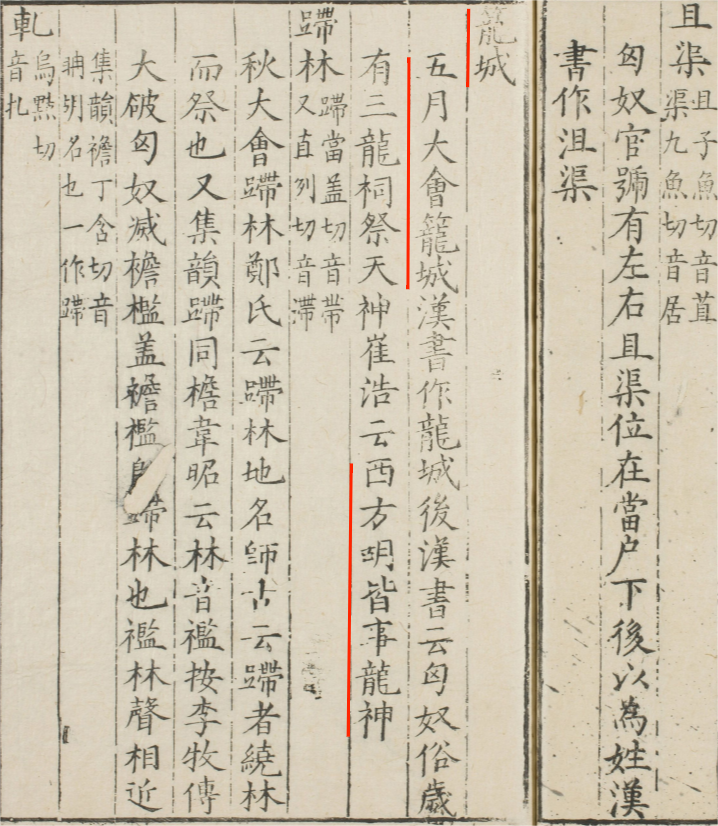 且渠 且子魚切音苴
渠九魚切音居
匈奴官號有左右且渠位在當户下後以為姓漢
書作沮渠
籠城
五月大會籠城漢書作龍城後漢書云匈奴俗歲
有三龍祠祭天神崔浩云西方胡皆事龍神
蹛林 蹛當盖切音帶
又直列切音滯
秋大會蹛林鄭氏云蹛林地名師古云蹛者繞林
而祭也又集韻蹛同檐韋昭云林音襤按李牧傳
大破匈奴滅襜檻盖襜檻蹛林也襤林聲相近
集韻襜丁含切音
聃胡名也一作蹛
軋 烏黠切
音扎